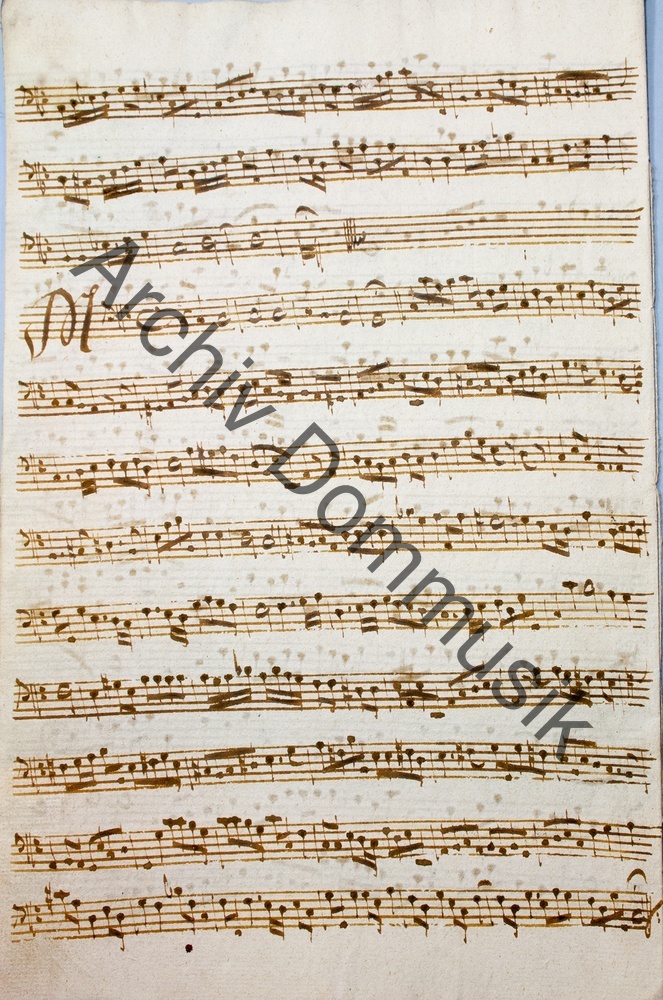 M
Archiv Dommusik